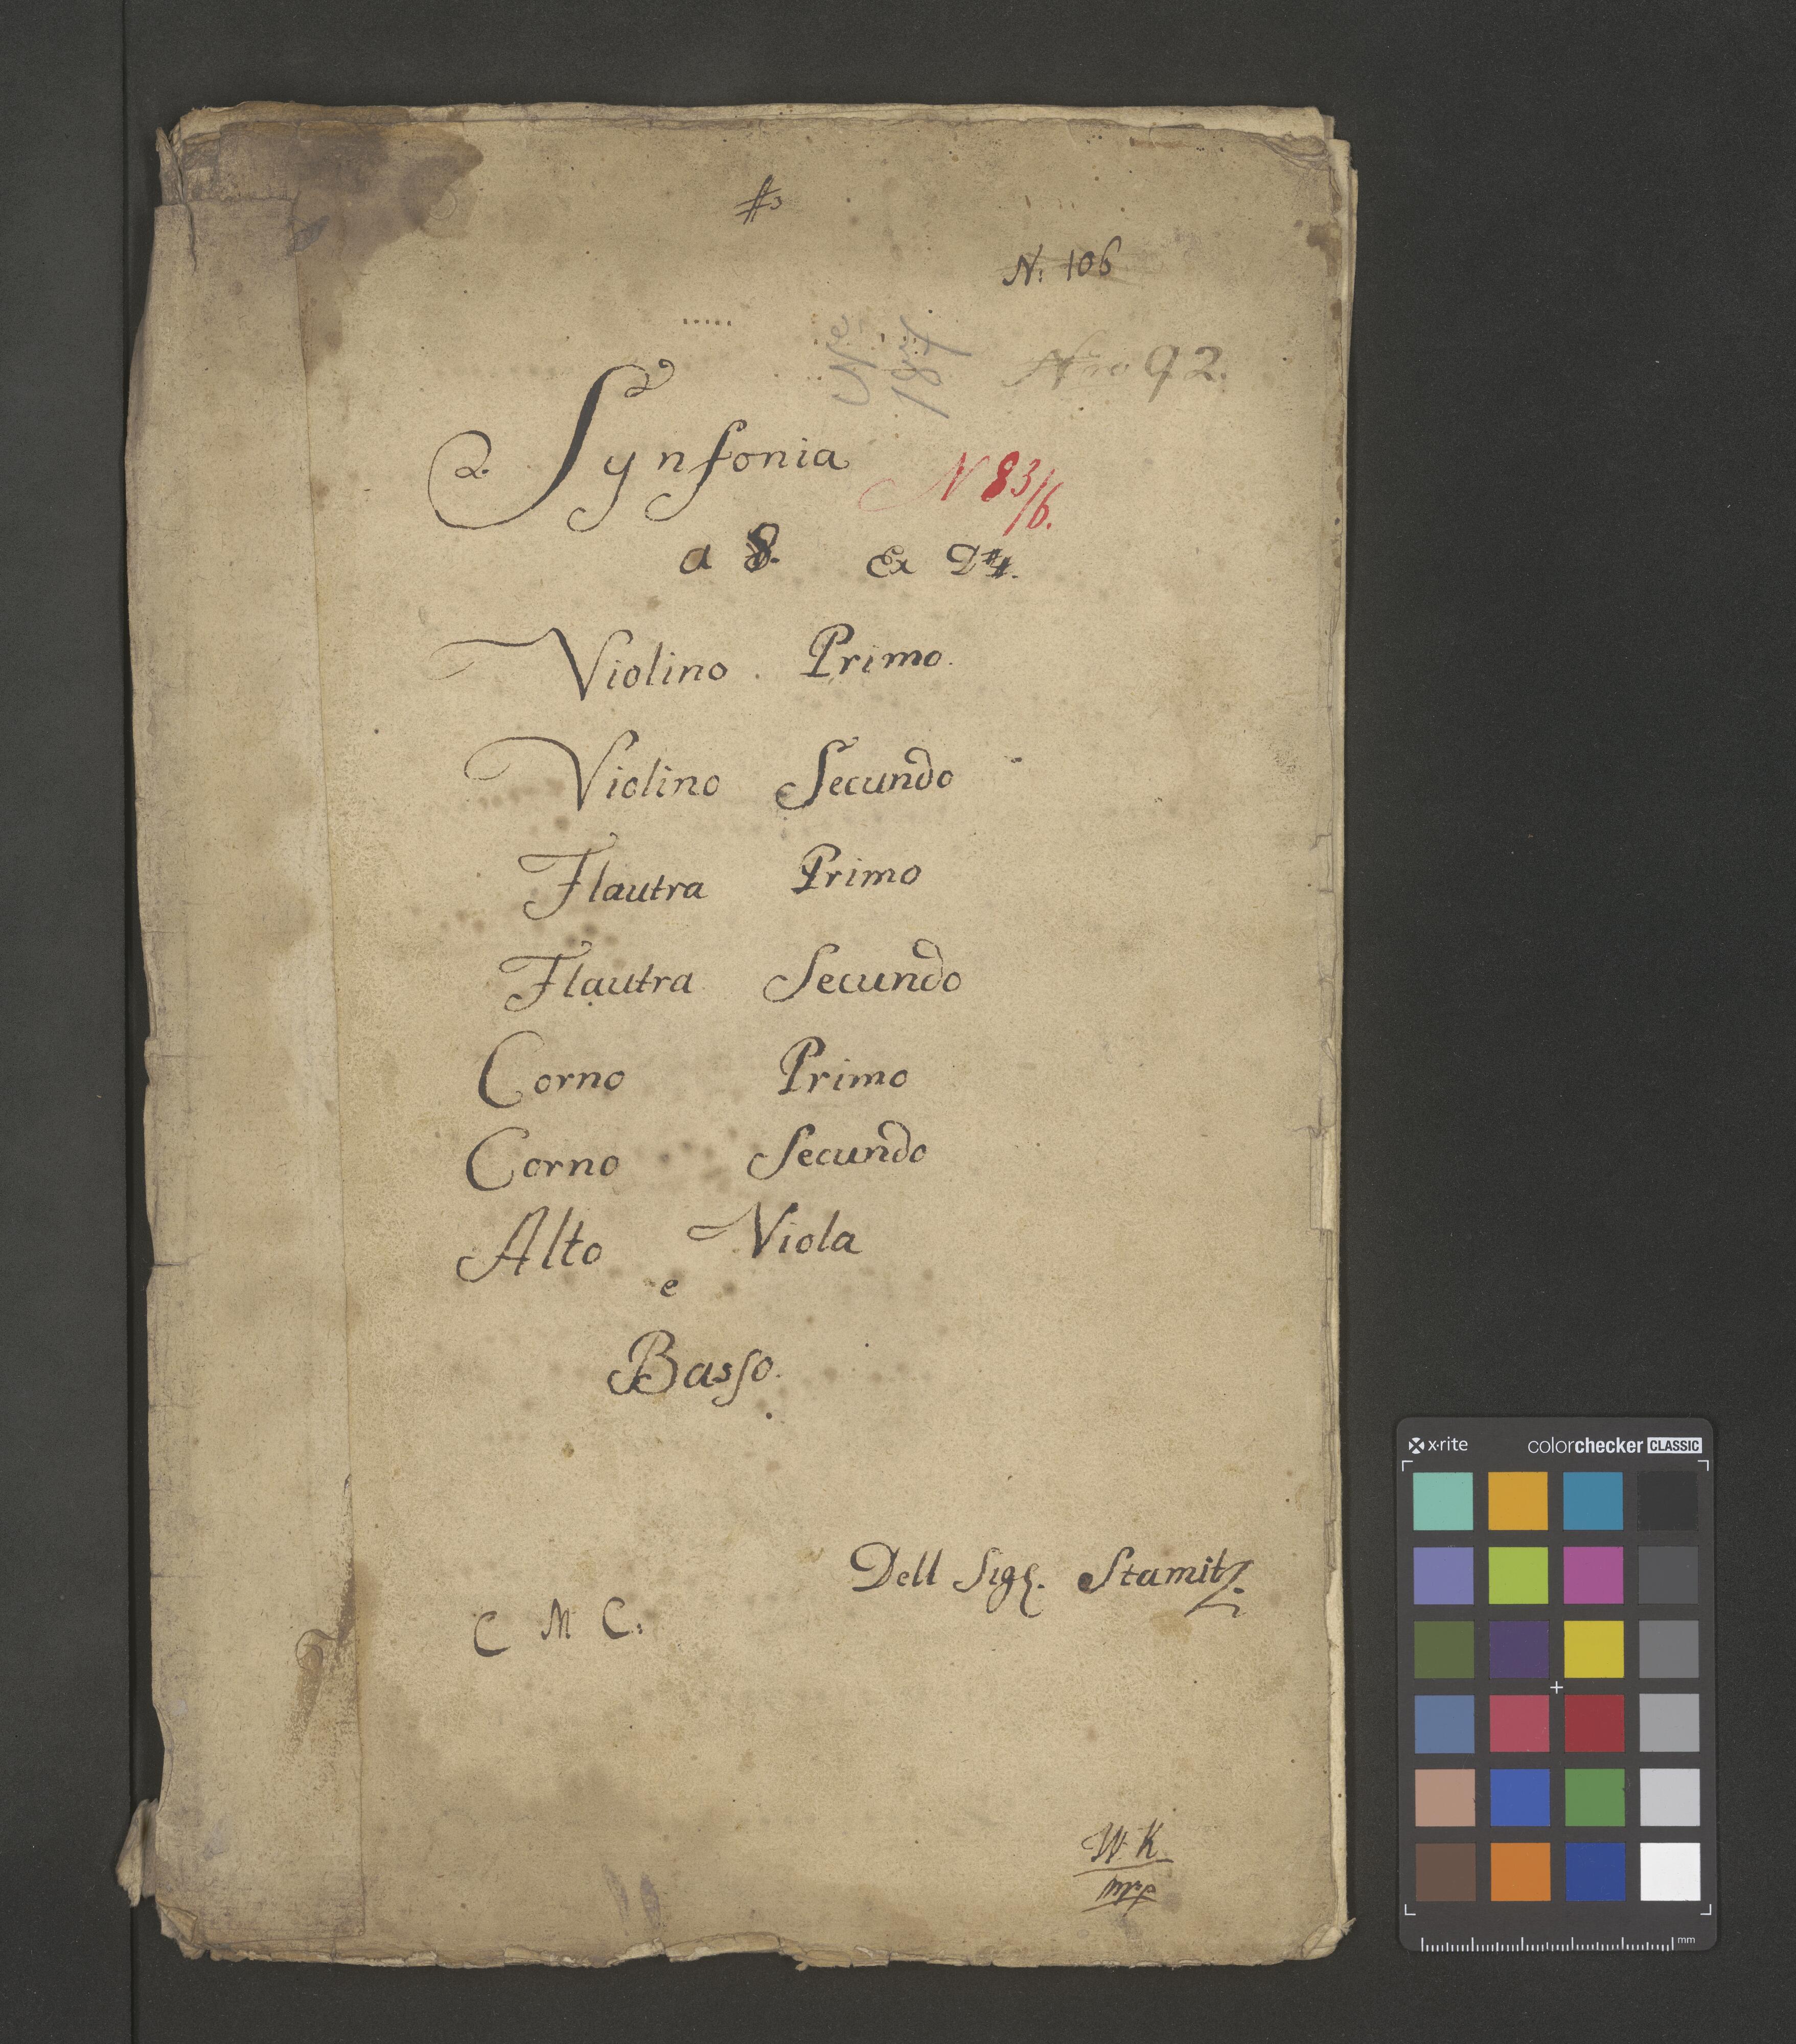 #
N: 106
Nro 92.
Synfonia
N 83/6.
a 8. Ex D#.
Violino Primo.
Violino Secundo
Flautra Primo
Flautra Secundo
Corno Primo
Corno Secundo
Alto Viola
e
Basso.
Dell Sigr. Stamitz.
C M C:
W K
mp
x·rite colorchecker CLASSIC
mm